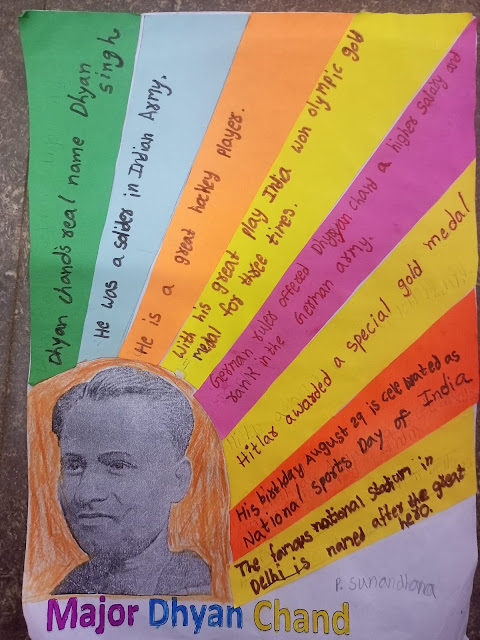 Dhyan chand's real name Dhyan
singh
He was a solider in Indian Army.
He is a great hockey player.
With his great play India won olympic gold
medal for three times.
German ruler offered Dhyan chand a higher salary and
rank in the German army.
Hitlar awarded a special gold medal
His birthday August 29 is celebrated as
National Sports Day of India
The famous national stadium in
Delhi is named after the great
hero.
P. Sunandhana
Major Dhyan Chand